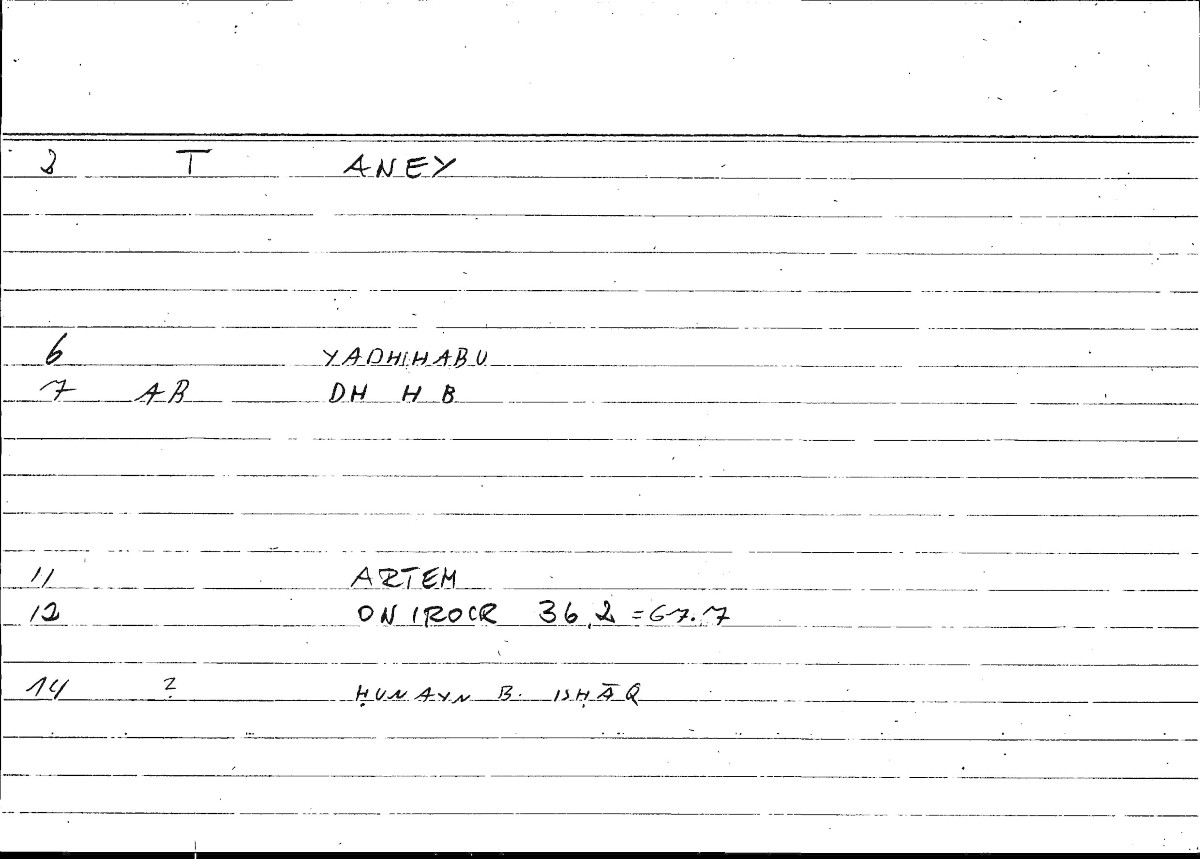 3 T ANEY
6 YADHIHABU
7 AB DH H B
11 ARTEM
12 ONIROCR 36,2 =67.7
14 ? ḤUNAYN B. ISḤĀQ